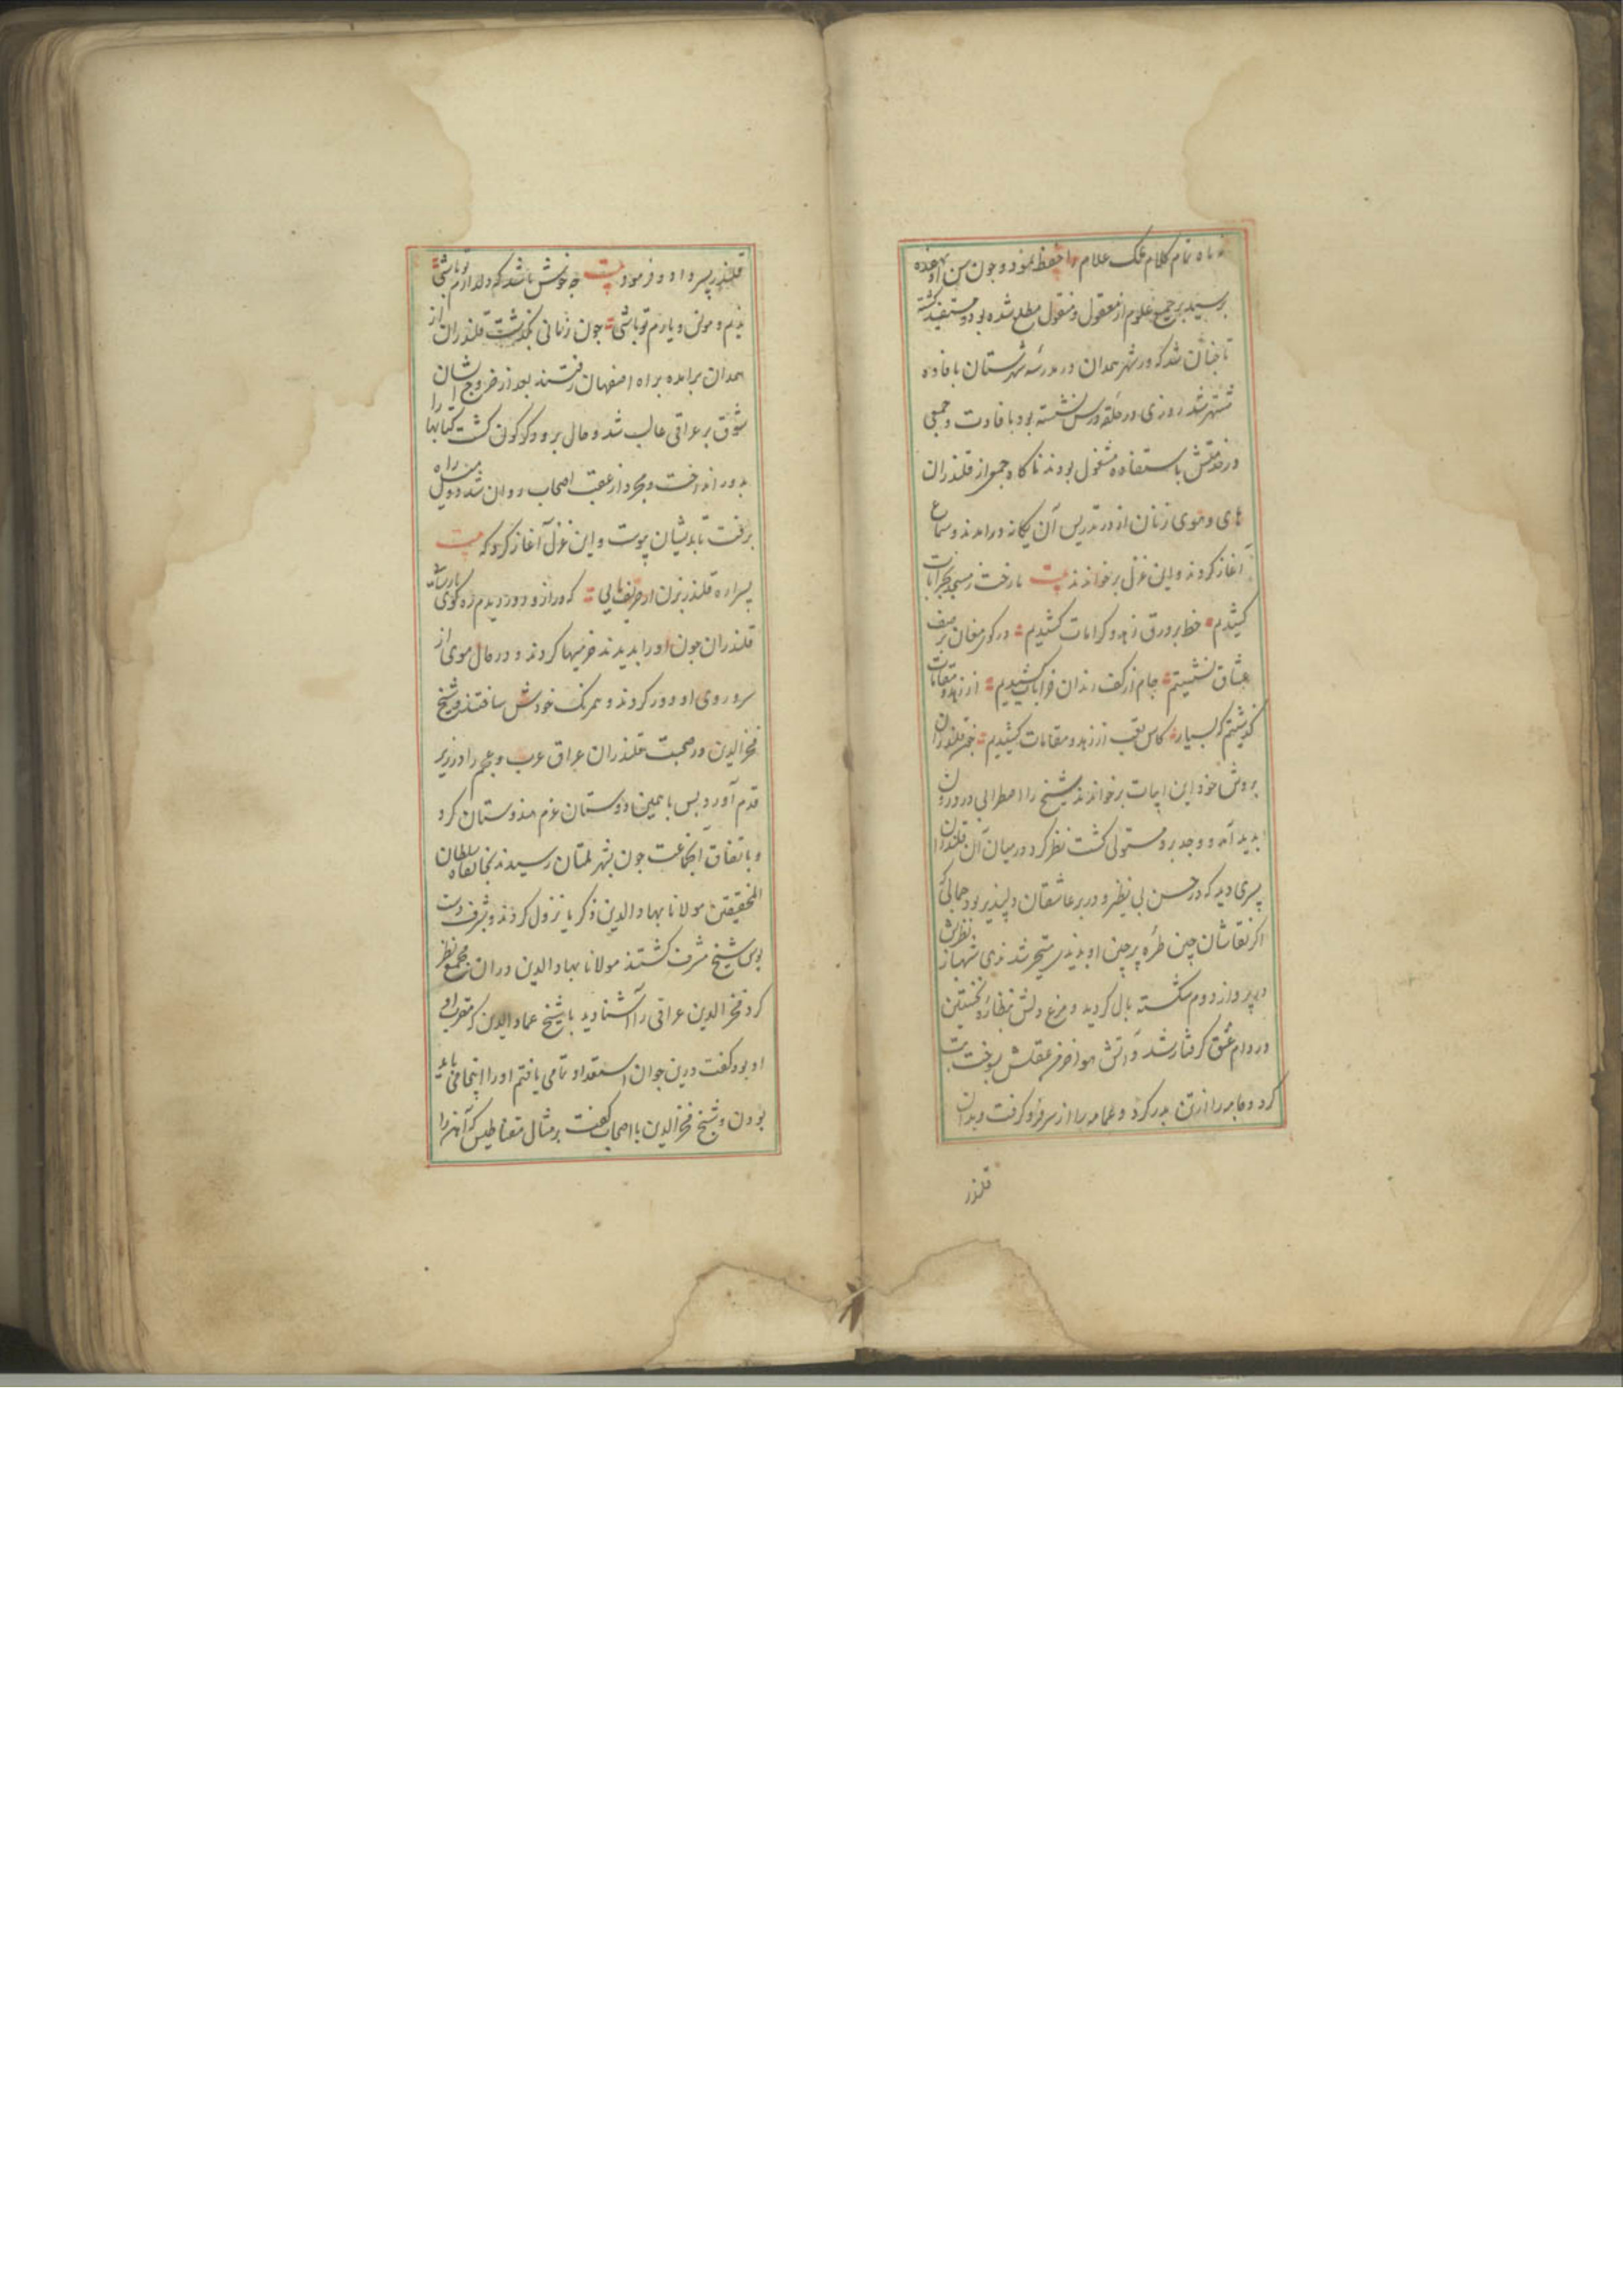 نه ماه تمام کلام ملک علام را حفظ نمود و چون سن او بهفده
برسید بر جمیع علوم از معقول و منقول مطلع شده بود و مستفید گشته
تا چنان شد که در شهر همدان در مدرسه شهرستان بافاده
مشتهر شد روزی در حلقه درس نشسته بود بافادت و جمعی
در خدمتش باستفاده مشغول بودند ناکاه جمعی از قلندران
های و هوی زنان از در تدریس آن یکانه درامدند و سماع
آغاز کردند و این غزل برخواندند بیت ما رخت ز مسجد بخرابات
کشیدیم خط بر ورق زهد و کرامات کشیدیم در کوی مغان در صف
عشاق نشستیم جام از کف رندان خرابات کشیدیم از زهد و مقامات
گذشتیم که بسیار کاس تعب از زهد و مقامات کشیدیم قلندران
بروش خود این ابیات برخواندند شیخ را اضطرابی در درون
پدید آمد و وجد برو مستولی کشت نظر کرد در میان آن قلندران
پسری دید که در حسن بی نظیر و در بر عاشقان دلپذیر بود جمالی که
اکر نقاشان چین طره پرچین او بدیدی متحیر شدندی شهباز نظرش
در پرواز دوم شکسته بال کردید و مرغ دلش بنظاره نخستین
در دام عشق کرفتار شد و آتش هوا خرمن عقلش بسوخت دست
کرد و جامه را از تن بدر کرد و عمامه را از سر فرو کرفت و بدان
قلندر
قلندر پسر داد و فرمود بیت چه خوش باشد که دلدارم تو باشی
ندیم و مونس و یارم تو باشی چون زمانی بگذشت قلندران از
همدان برامده براه اصفهان رفتند بعد از خروج ایشان
شوق بر عراقی غالب شد و حال برو دگرگون کشت کتابها را
بدور انداخت و مجرد از عقب اصحاب روان شد دو میل راه
برفت تا بدیشان پیوست و این غزل آغاز کرد که بیت
پسرا ره قلندر بزن ار حریف مایی که دراز و دور دیدم ره کوی پارسایی
قلندران چون او را بدیدند خرمیها کردند و در حال موی از
سر و روی او دور کردند و همرنک خودش ساختند و شیخ
فخرالدین در صحبت قلندران عراق عرب و عجم را در زیر
قدم آورد پس با همین دوستان عزم هندوستان کرد
و باتفاق آن جماعت چون بشهر ملتان رسیدند بخانقاه سلطان
المحققین مولانا بهاء الدین زکریا نزول کردند و بشرف دست
بوس شیخ مشرف گشتند مولانا بهاء الدین در ان مجمع نظر
کرد فخر الدین عراقی را آشنا دید با شیخ عماد الدین که مقرب او
او بود کفت درین جوان استعداد تمامی یافتم او را اینجا می باید
بودن و شیخ فخر الدین با اصحاب کفت بر مثال مقناطیس که آهن را